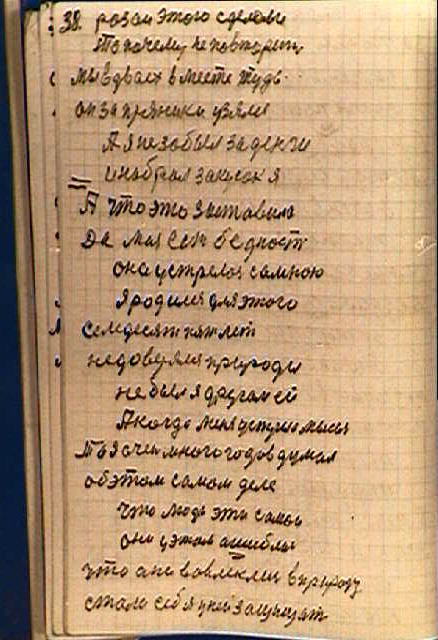 38. розам этого сделали
то почему не повторить
мы вдваех вместе туда
он за пряники взяли
А я не забыл за денги
и набрал закусок я
А что это заставило
Да моя есть бедность
она устрелоя самною
я родился для этого
Семдесят пят лет
недовуляя природы
не был я другом ей
А когда меня мысы
То я очен много годов думал
об этом самом деле
что люди эти самы
они у этом ашибли
что они вовлекли в природу
стало себя у ней защищят